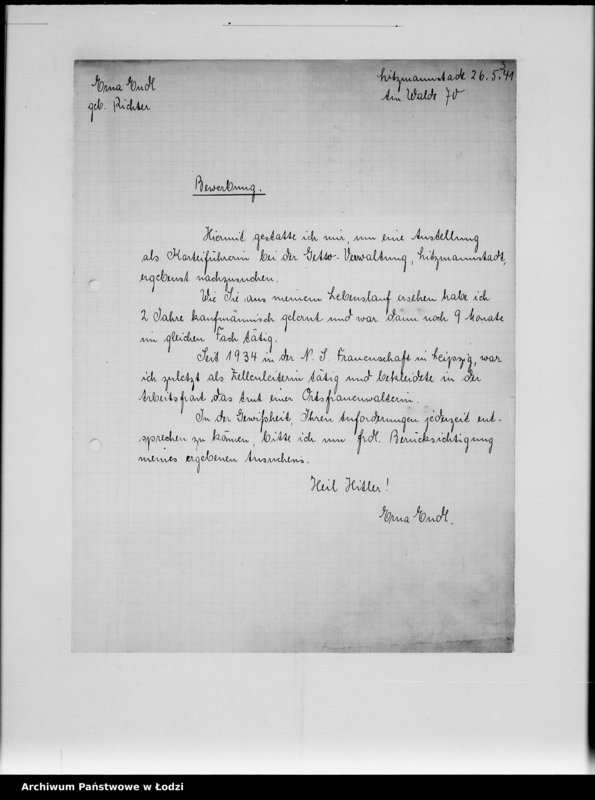 Erna Endl
geb. Richter
Litzmannstadt 26.5.41
Am Walde 70
Bewerbung.
Hiermit gestatte ich mir, um eine Anstellung
als Karteiführerin bei der Getto-Verwaltung, Litzmannstadt,
ergebenst nachzusuchen.
Wie Sie aus meinem Lebenslauf ersehen habe ich
2 Jahre kaufmännisch gelernt und war dann noch 9 Monate
im gleichen Fach tätig.
Seit 1934 in der N. S. Frauenschaft in Leipzig, war
ich zuletzt als Zellenleiterin tätig und bekleidete in der
Arbeitsfront das Amt einer Ortsfrauenwalterin.
In der Gewißheit, Ihren Anforderungen jederzeit ent-
sprechen zu können, bitte ich um frdl. Berücksichtigung
meines ergebenen Ansuchens.
Heil Hitler!
Erna Endl.
Archiwum Państwowe w Łodzi